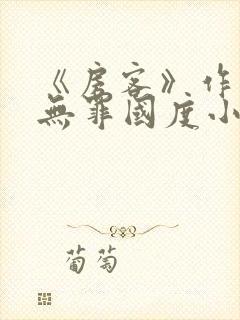 《房客》作
無罪國度小
葡萄